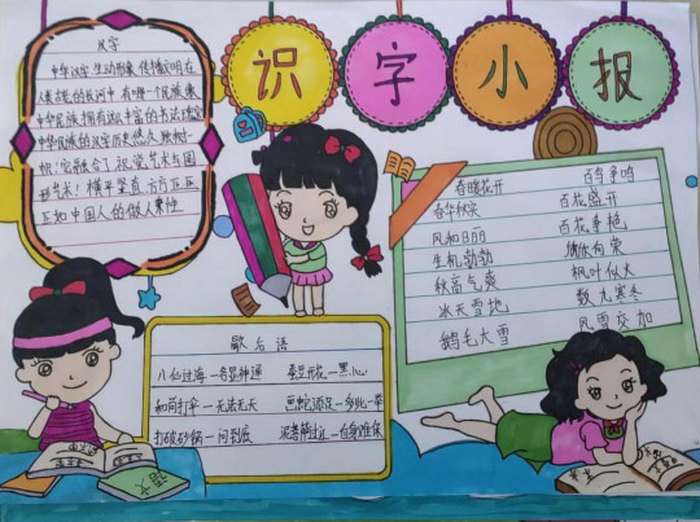 识字小报
汉字
中华汉字,生动形象,传播文明在
人类历史的长河中,有哪一个民族像
中华民族拥有这么丰富的书法瑰宝
中华民族的汉字历史悠久,独树一
帜!它融合了视觉艺术与图
形艺术!横平竖直,方方正正
正如中国人的做人秉性
春暖花开 百鸟争鸣
春华秋实 百花盛开
风和日丽 百花争艳
生机勃勃 欣欣向荣
秋高气爽 枫叶似火
冰天雪地 数九寒冬
鹅毛大雪 风雪交加
歇后语
八仙过海—各显神通 蚕豆开花—黑心
和尚打伞—无法无天 画蛇添足—多此一举
打破砂锅—问到底 泥菩萨过江—自身难保
语文